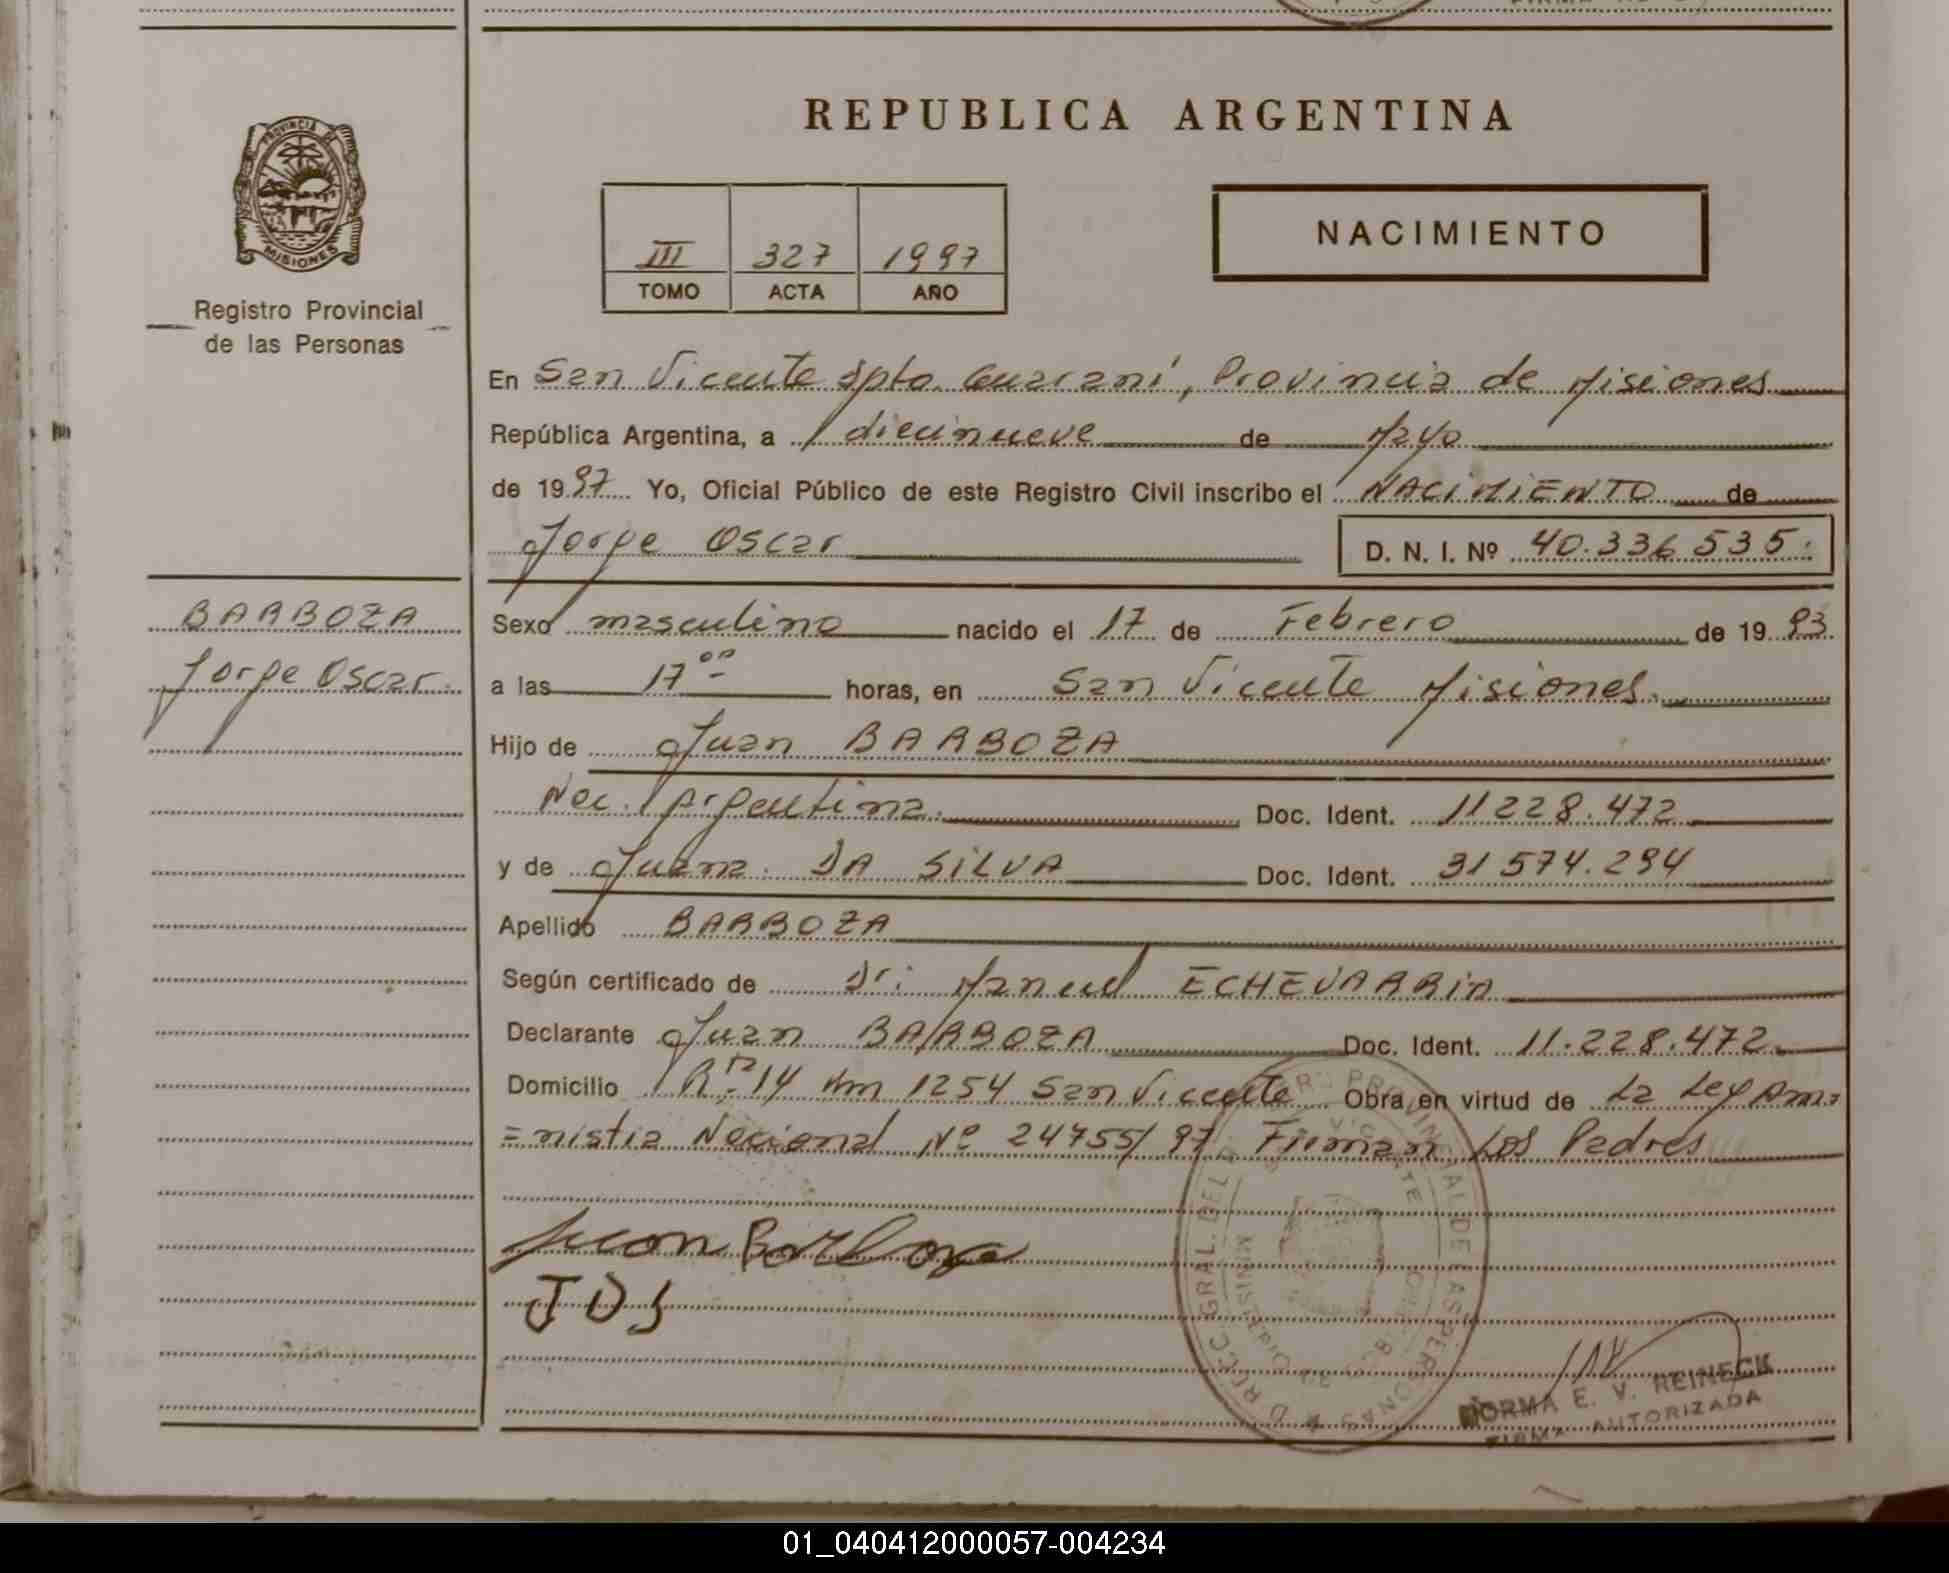 REPUBLICA ARGENTINA
PROVINCIA DE
MISIONES
Registro Provincial
de las Personas
III 327 1997
TOMO ACTA AÑO
NACIMIENTO
En San Vicente Dpto. Guaraní, Provincia de Misiones
República Argentina, a diecinueve de Mayo
de 1997 Yo, Oficial Público de este Registro Civil inscribo el NACIMIENTO de
Jorge Oscar D. N. I. Nº 40.336.535.
BARBOZA
Jorge Oscar.
Sexo masculino nacido el 17 de Febrero de 1993
a las 17 00 horas, en San Vicente Misiones.
Hijo de Juan BARBOZA
Nac. Argentina. Doc. Ident. 11 228.472
y de Juana DA SILVA Doc. Ident. 31 574.294
Apellido BARBOZA
Según certificado de Dr: Manuel ECHEVARRIA
Declarante Juan BARBOZA Doc. Ident. 11.228.472.
Domicilio R.n 14 Km 1254 San Vicente Obra en virtud de La Ley Am=
=nistia Nacional Nº 24755/97 Firman Los Padres
Juan Barboza
JDS
NORMA E. V. REINECK
FIRMA AUTORIZADA
01_040412000057-004234